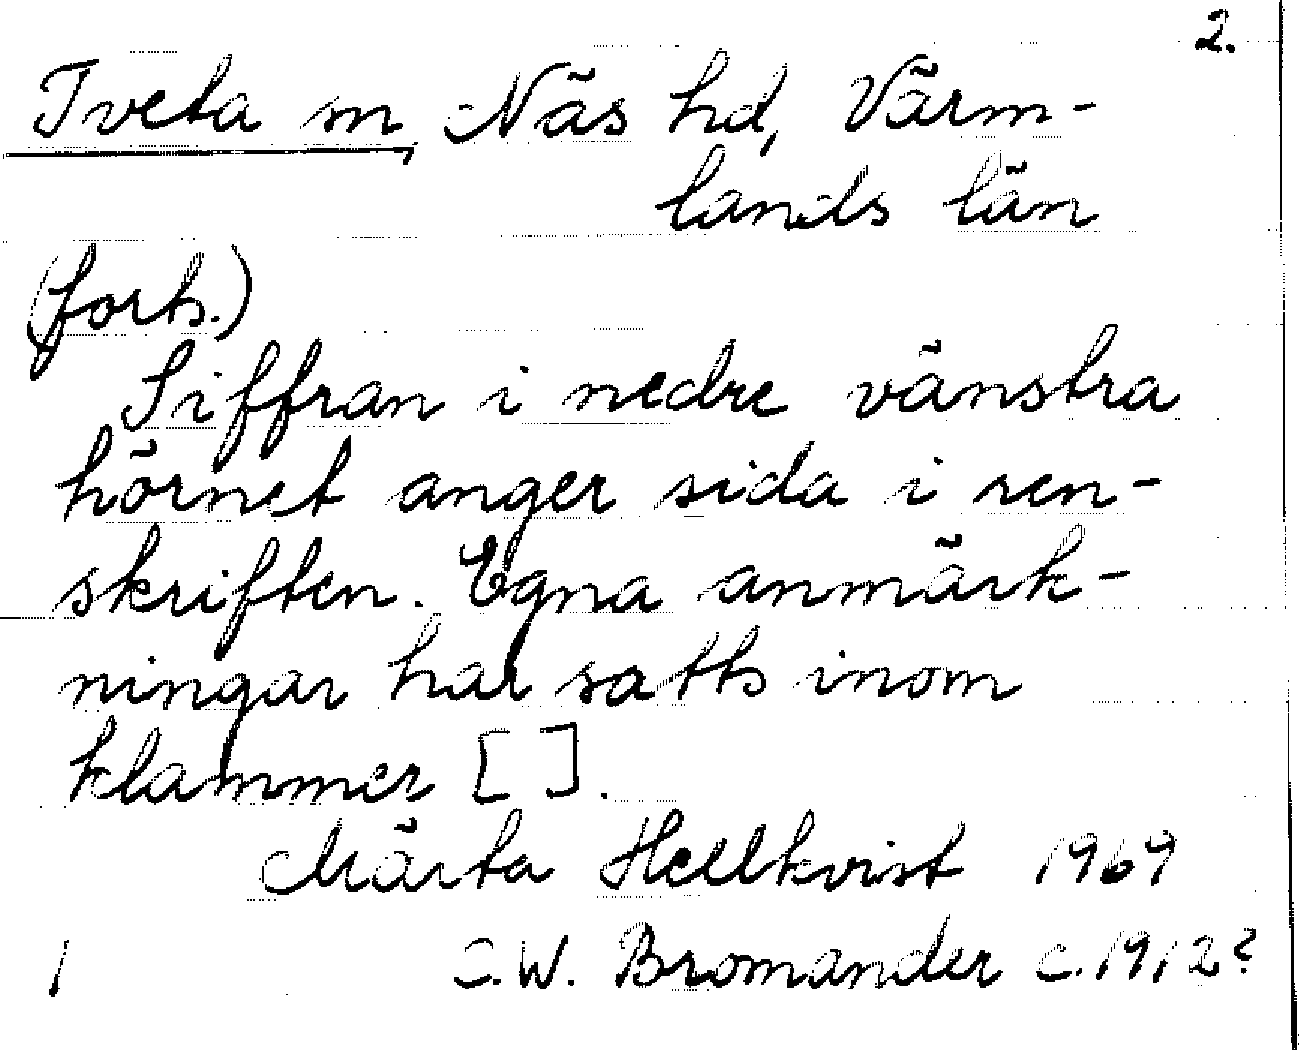 2.
Tveta sn, Näs hd, Värm-
lands län
(forts.)
Siffran i nedre vänstra
hörnet anger sida i ren-
skriften. Egna anmärk-
ningar har satts inom
klammer [ ].
Märta Hellkvist 1969
1 C.W. Bromander c. 1912?